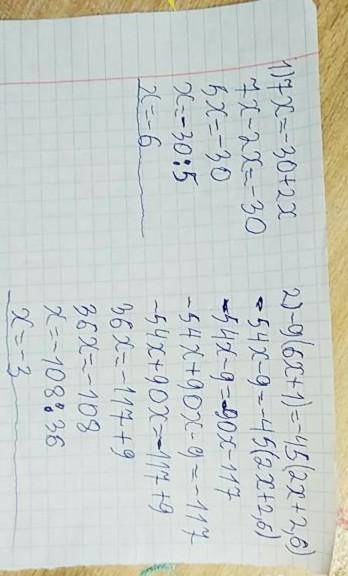 1) 7x=-30+2x
7x-2x=-30
5x=-30
x=-30:5
x=-6
2) -9(6x+1)=-45(2x+2,6)
-54x-9=-45(2x+2,6)
-54x-9=-90x-117
-54x+90x-9=-117
-54x+90x=-117+9
36x=-117+9
36x=-108
x=-108:36
x=-3